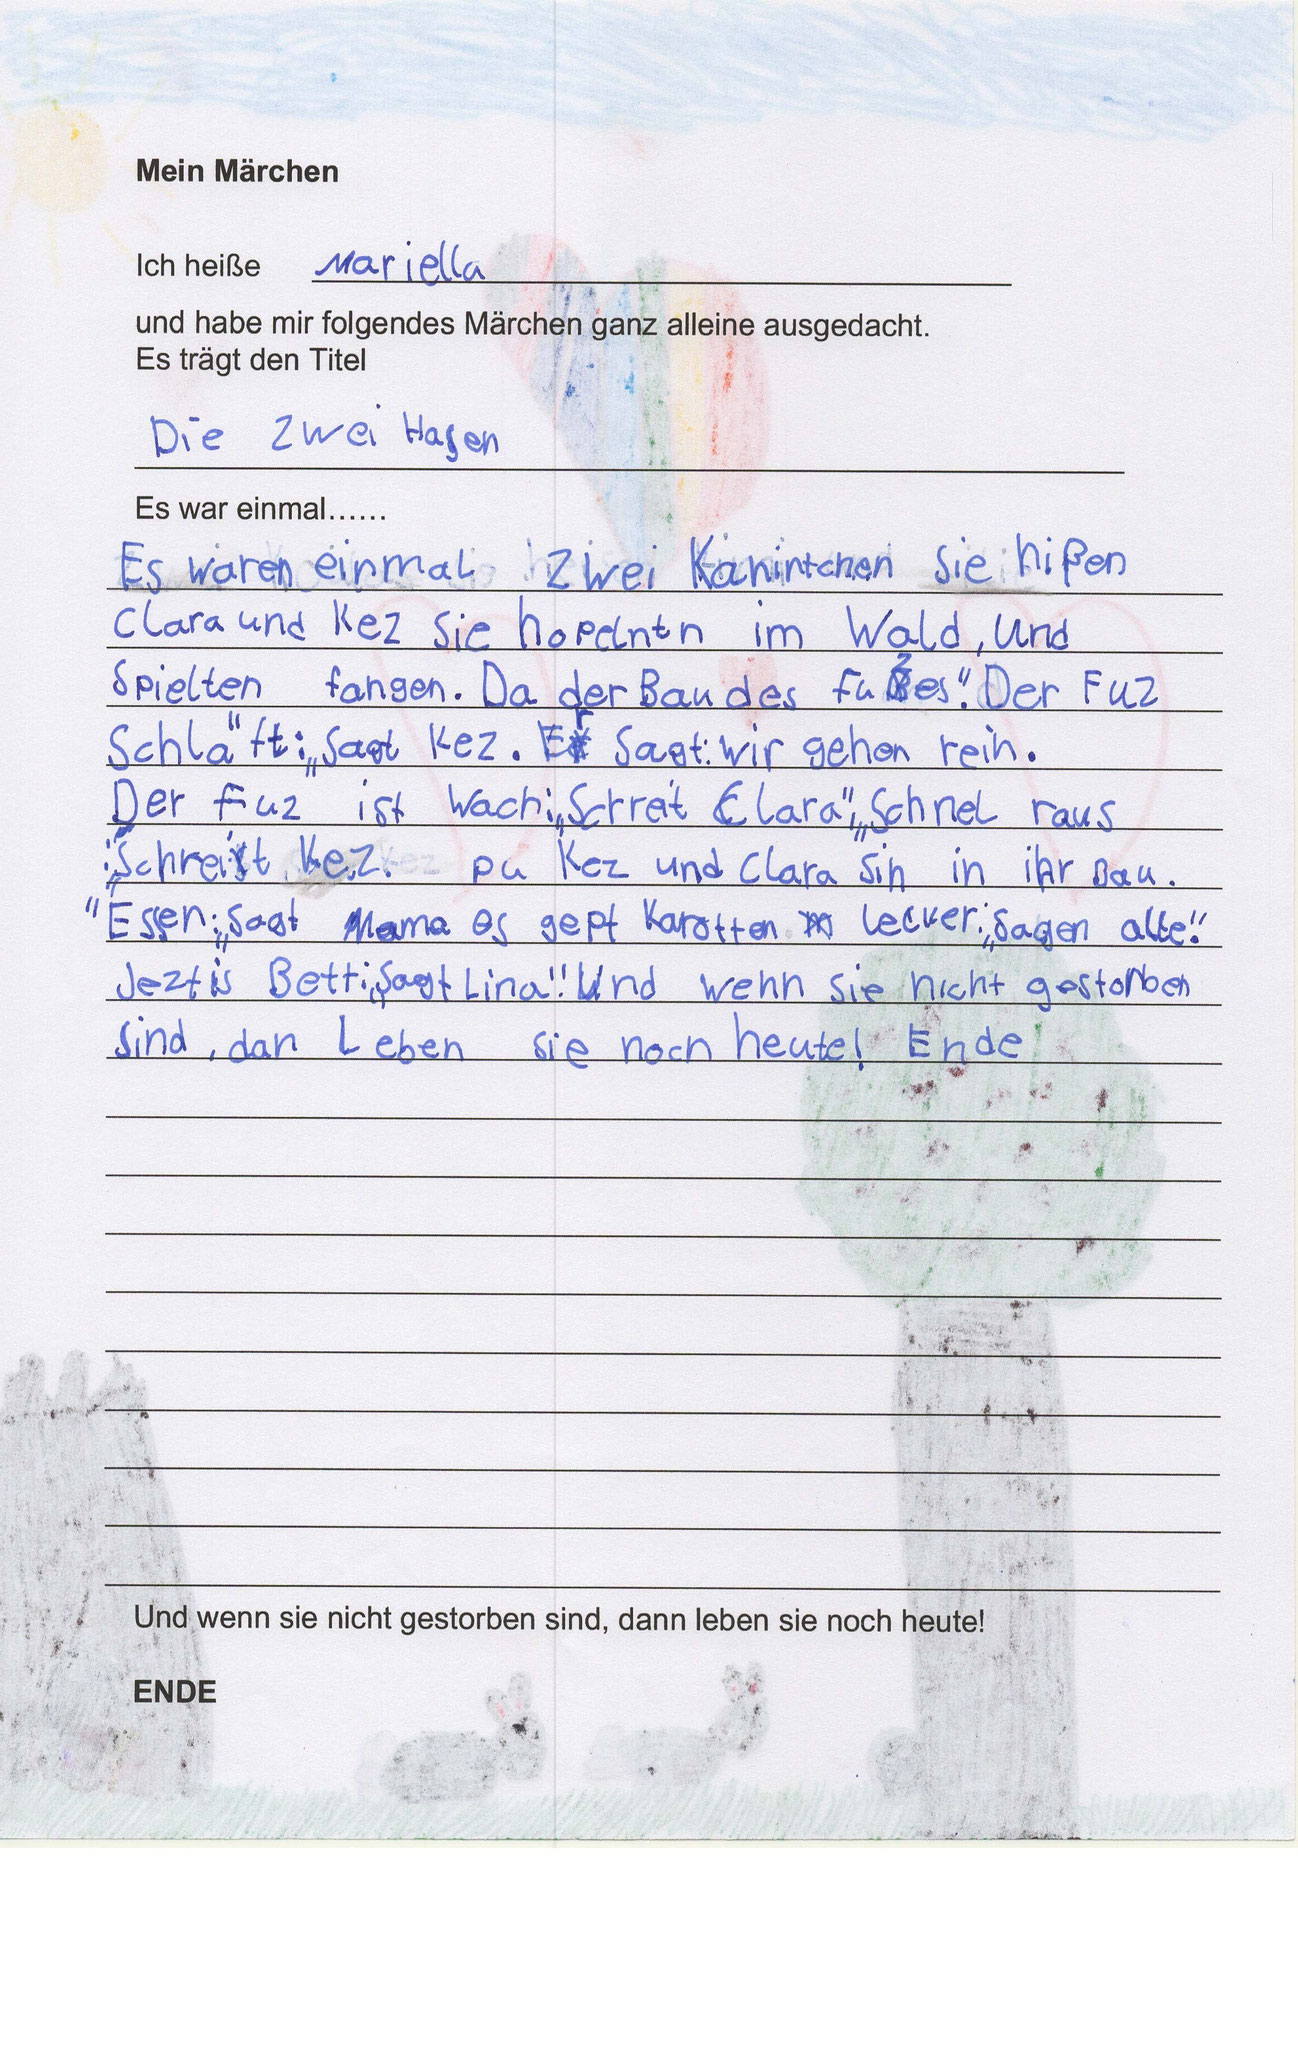 Mein Märchen
Ich heiße Mariella
und habe mir folgendes Märchen ganz alleine ausgedacht.
Es trägt den Titel
Die zwei Hasen
Es war einmal......
Es waren einmal zwei Kanintchen sie hißen
Clara und Kez sie hopelntn im Wald, und
spielten fangen. Da der Bau des Fuzes". Der Fuz
Schlä"ft:„sagt Kez. Er sagt: wir gehen rein.
Der Fuz ist wach:„Schreit Clara";„Schnel raus
:„Schreit Kez. pu Kez und Clara sin in ihr Bau.
"Essen:„sagt Mama es gept Karotten lecker:„sagen alle".
Jezt is Bett:„sagt Lina"! Und wenn sie nicht gestorben
sind, dan Leben sie noch heute! Ende
Und wenn sie nicht gestorben sind, dann leben sie noch heute!
ENDE